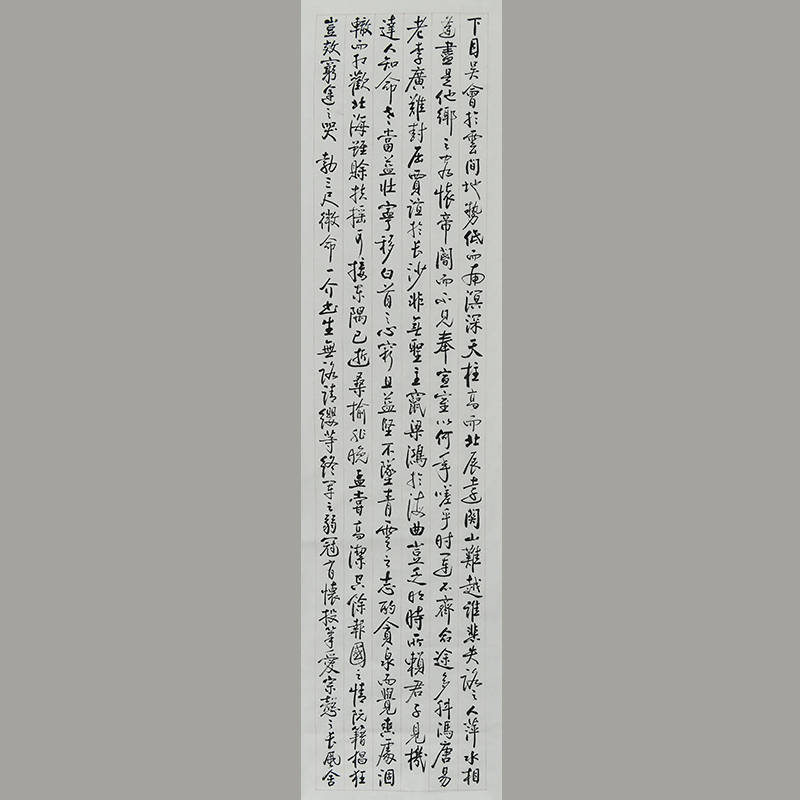 下目吳會於雲間地勢低而南溟深天柱高而北辰遠關山難越誰悲失路之人萍水相
逢盡是他鄉之客懷帝閽而不見奉宣室以何年嗟乎时運不齊命途多舛馮唐易
老李廣難封屈賈誼於长沙非無聖主竄梁鴻於海曲豈乏明時所賴君子見機
達人知命老當益壯寧移白首之心窮且益堅不墜青雲之志酌貪泉而覺爽處涸
轍而相歡北海雖賒扶摇可接東隅已逝桑榆非晚孟嘗高潔空餘報國之情阮籍猖狂
豈效窮途之哭 勃三尺微命一介書生無路請纓等終軍之弱冠有懷投筆愛宗慤之长風舍